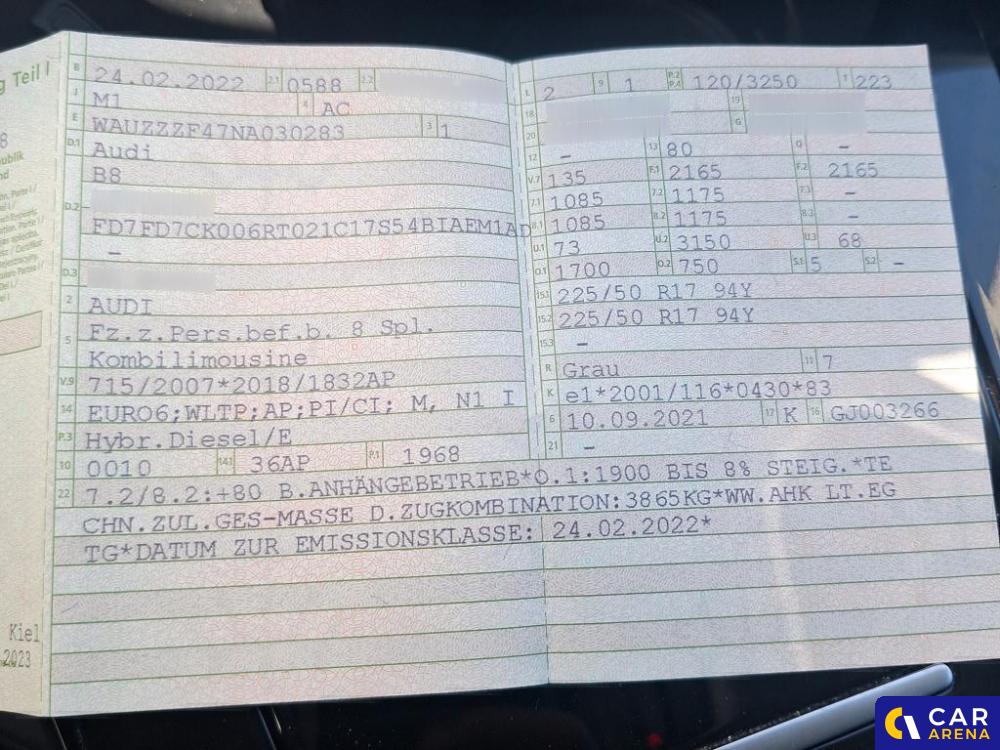 g Teil I
B 24.02.2022 2.1 0588 2.2
J M1 4 AC
E WAUZZZF47NA030283 3 1
D.1 Audi
B8
D.2
FD7FD7CK006RT021C17S54BIAEM1AD
–
D.3
2 AUDI
5 Fz.z.Pers.bef.b. 8 Spl.
Kombilimousine
V.9 715/2007*2018/1832AP
14 EURO6;WLTP;AP;PI/CI; M, N1 I
P.3 Hybr.Diesel/E
10 0010 14.1 36AP P.1 1968
L 2 9 1 P.2 P.4 120/3250 T 223
18 19
20 G
12 – 13 80 Q –
V.7 135 F.1 2165 F.2 2165
7.1 1085 7.2 1175 7.3 –
8.1 1085 8.2 1175 8.3 –
U.1 73 U.2 3150 U.3 68
O.1 1700 O.2 750 S.1 5 S.2 –
15.1 225/50 R17 94Y
15.2 225/50 R17 94Y
15.3 –
R Grau 11 7
K e1*2001/116*0430*83
6 10.09.2021 17 K 16 GJ003266
21 –
22 7.2/8.2:+80 B.ANHÄNGEBETRIEB*O.1:1900 BIS 8% STEIG.*TE
CHN.ZUL.GES-MASSE D.ZUGKOMBINATION:3865KG*WW.AHK LT.EG
TG*DATUM ZUR EMISSIONSKLASSE: 24.02.2022*
Kiel
2023
CAR
ARENA